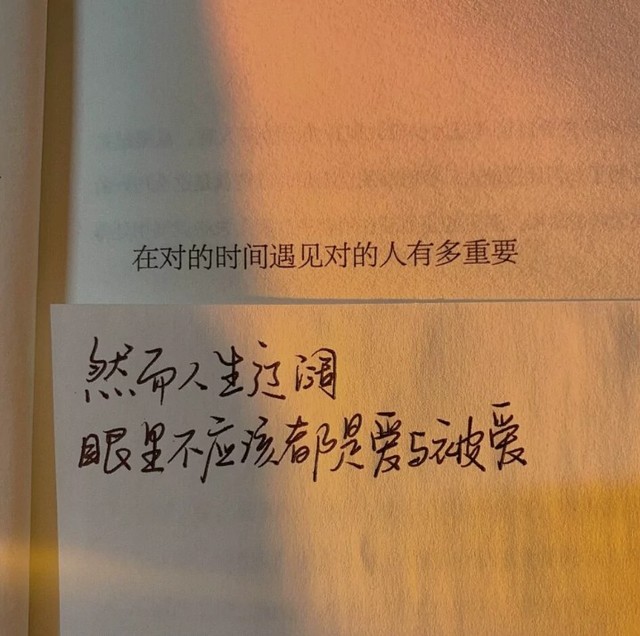 在对的时间遇见对的人有多重要
然而人生辽阔
眼里不应该都是爱与被爱